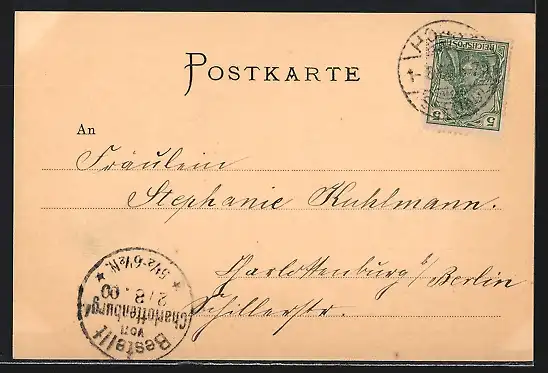 POSTKARTE
REICHSPOST
5 5
An
Fräulein
Stephanie Kuhlmann.
Charlottenburg b/Berlin
Schillerstr.
Bestellt
von
Charlottenburg
2/8.00
5½-6½N.